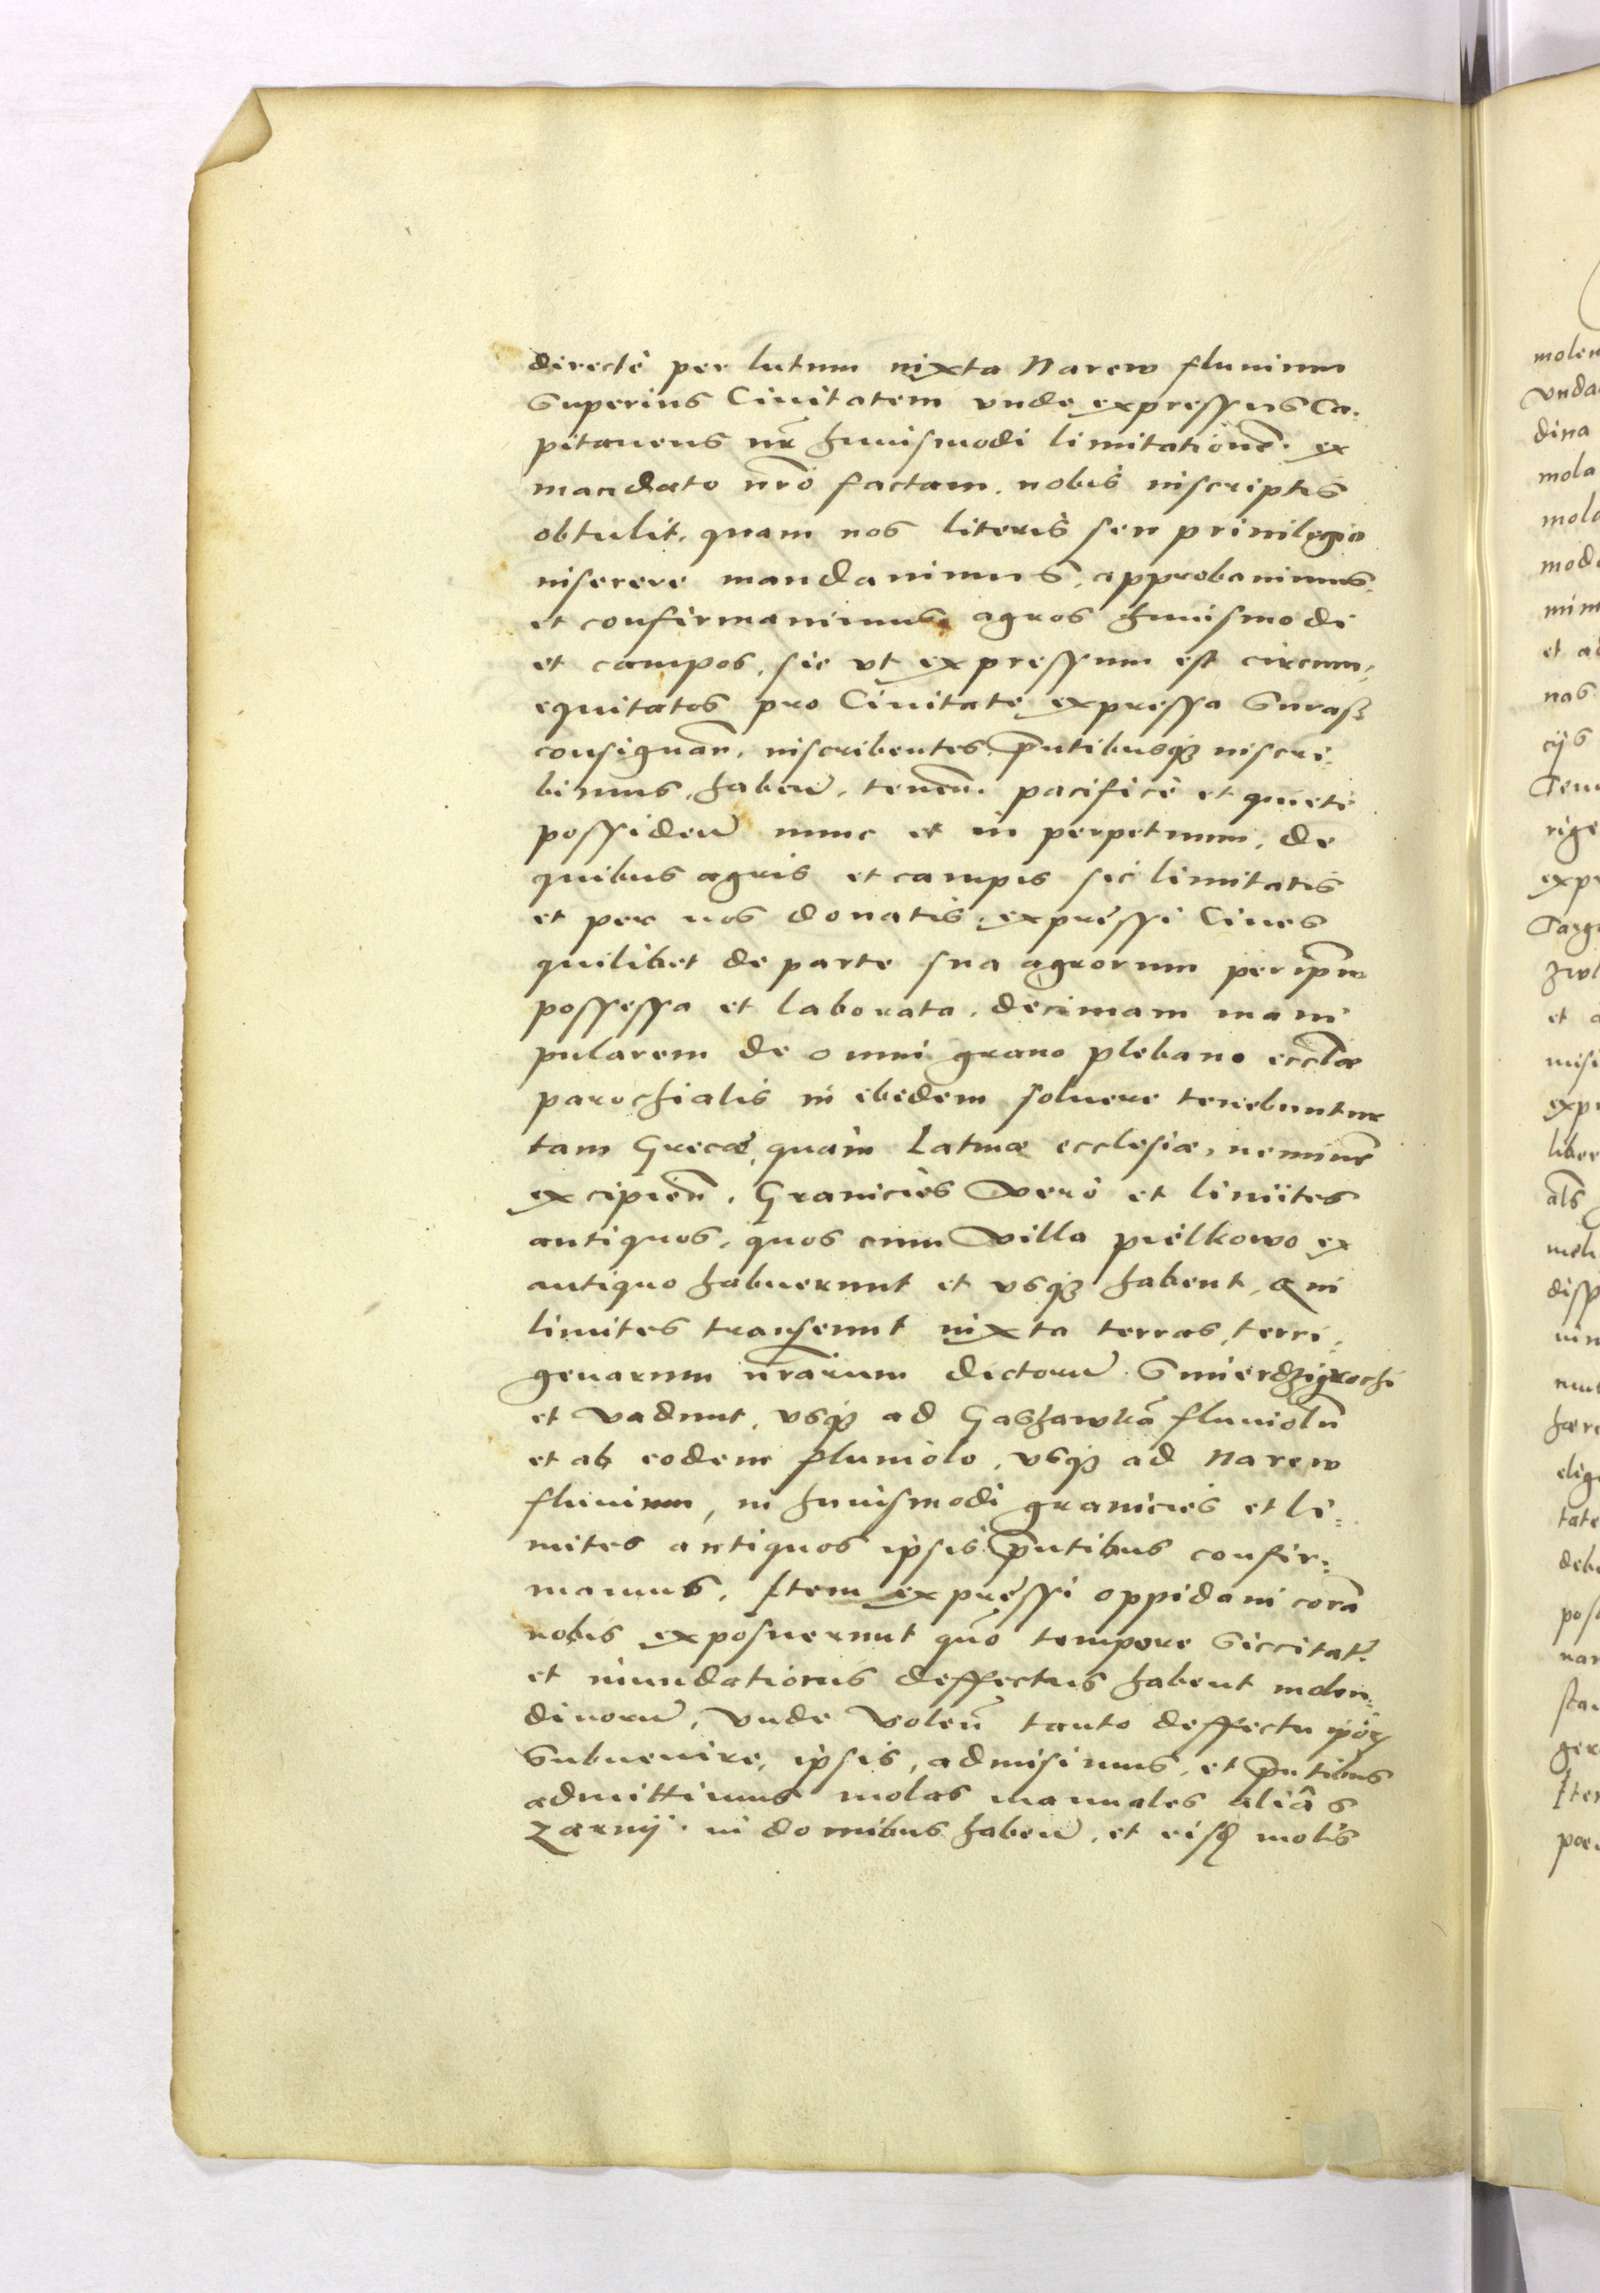 directè per lutum iuxta Narew fluuium
Superius Ciuitatem vnde expressus Ca-
pitaneus nr̃ huiusmodi limitationẽ. ex
mandato nrõ factam. nobis inscriptis
obtulit. quam nos literis seu priuilegio
inserere mandauimus, approbauimus.
et confirmauimus, agros huiusmodi
et campos, sic vt expressum est circum-
equitatos pro Ciuitate expressa Suraß
consignañ. inscribentes p̃ntibusq3 inscri-
bimus, habeñ. teneñ. pacificè et quietè
possideñ nunc et in perpetuum, de
quibus agris et campis sic limitatis
et per nos donatis, expressi Ciues
quilibet de parte sua agrorum per ip̃m
possessa et laborata, decimam mani
pularem de omni grano plebano eccl̃æ
parochialis in ibidem soluere tenebuntur
tam Grecæ, quàm Latinæ ecclesiæ, neminẽ
excipieñ. Granicies verò et limites
antiquos, quos cum Villa pielkowo ex
antiquo habuerunt et vsq3 habent, qui
limites transeunt iuxta terras, terri-
genarum nr̃arum dictorũ Smierdzigrochi
et vadunt, vsq3 ad Gashawkã fluuiolũ
et ab eodem fluuiolo, vsq3 ad Narew
fluuium, in huiusmodi granicies et li-
mites antiquos ipsis p̃ntibus confir-
mamus. Item expressi oppidani corã
nobis exposuerunt quõ tempore Siccitat̃.
et inundationis deffectus habent molen-
dinorũ, vnde voleñ tanto deffectu ip̃or
Subuenire, ipsis, admisimus, et p̃ntibus
admittimus molas manuales aliâs
Zarnij. in domibus habeñ. et eisd̃ molis
molen
vnda
dina
mola
mola
mode
mim
et ad
nas
cijs
rige
expr
et a
misi
expr
liber
als
disp
haere
elig
tate
debe
poss
nan
ger
Iter